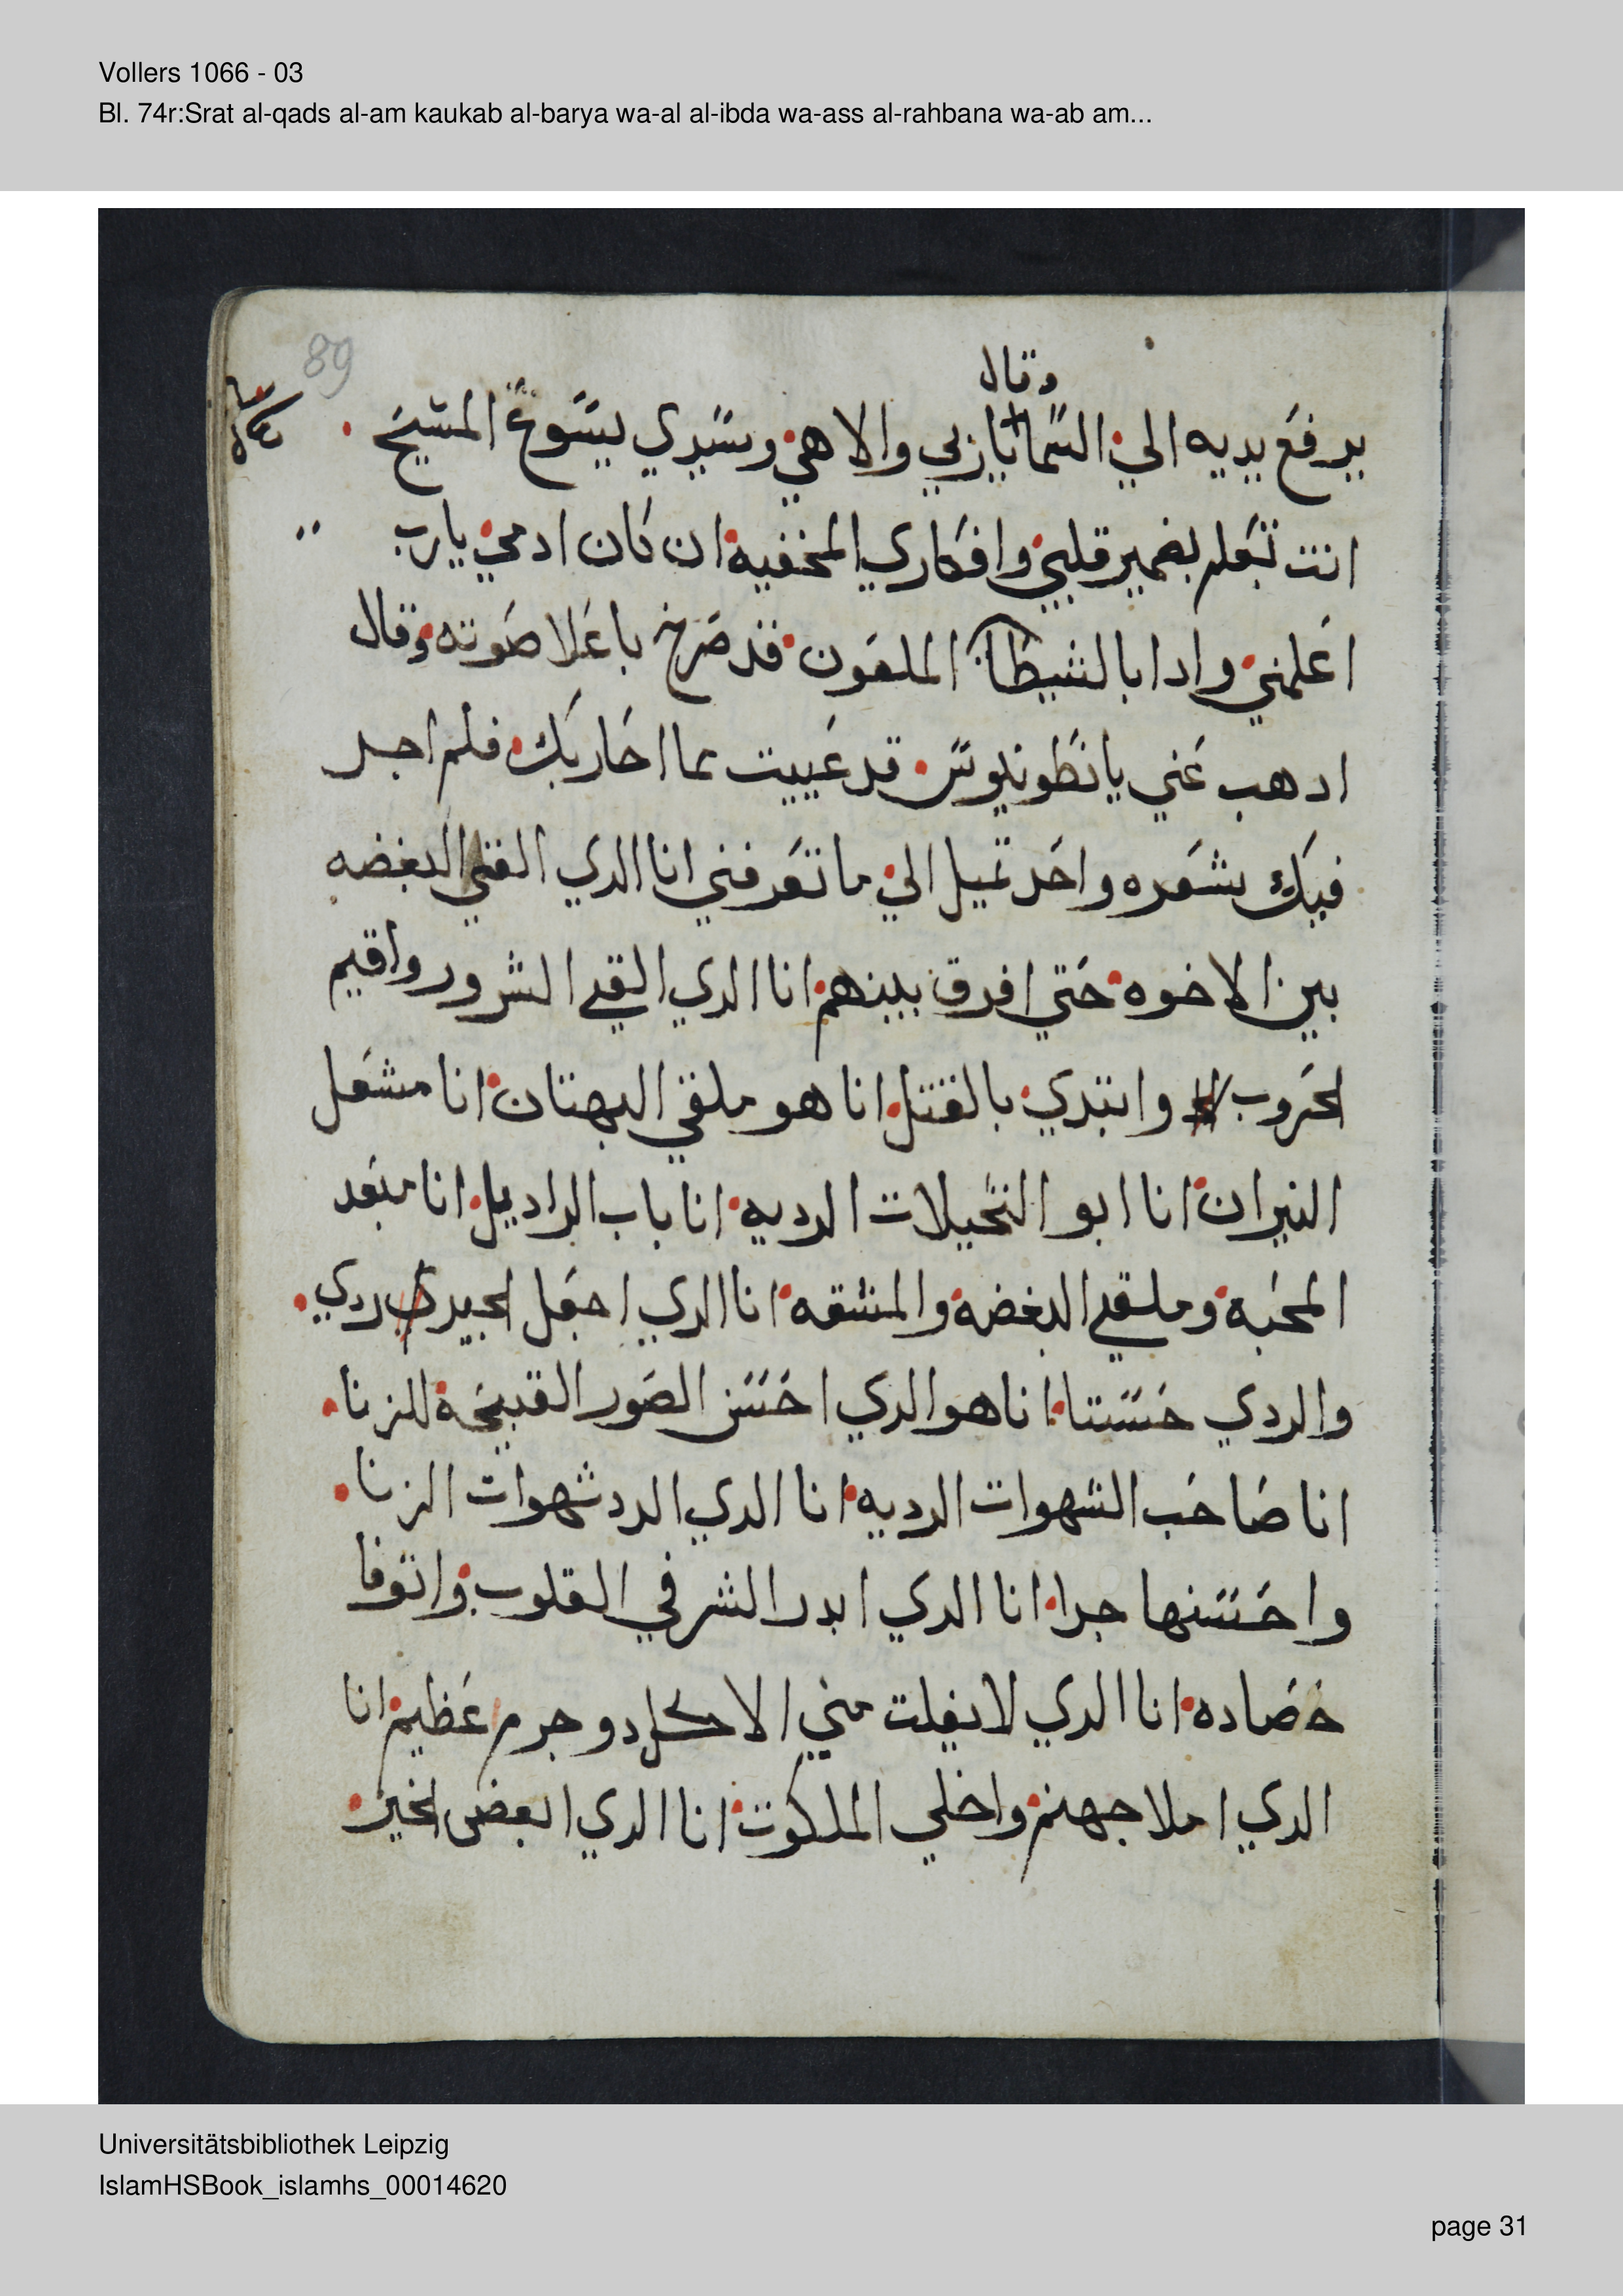 Vollers 1066 - 03
Bl. 74r:Srat al-qads al-am kaukab al-barya wa-al al-ibda wa-ass al-rahbana wa-ab am...
89
وقال
يرفع يديه الي السما ياربي والاهي وسيدي يسوع المسيح
انت تعلم بضمير قلبي وافكاري المخفيه ان كان ادمي يارب
اعلمني وادا بالشيطان الملعون قد صرخ باعلا صوته وقال
ادهب عني يانطونيوس قد عييت مما احاربك فلم اجد
فيك شعره واحد تميل الي ما تعرفني انا الدي القي البغضه
بين الاخوه حتي افرق بينهم انا الدي القي الشرور واقيم
الحروب وابتدي بالقتل انا هو ملقي البهتان انا مشعل
النيران انا ابو التخيلات الرديه انا باب الراديل انا مبعد
المحبه وملقي البغضه والمشقه انا الدي اجعل الجيد ردي
والردي حسنا انا هو الدي احسن الصور القبيحه للزنا
انا صاحب الشهوات الرديه انا الدي الدد شهوات الزنا
واحسنها جدا انا الدي ابدر الشر في القلوب واتوفا
حصاده انا الدي لا يفلت مني الا كل دو جرم عظيم انا
الدي املا جهنم واخلي الملكوت انا الدي ابغض الخير
Universitätsbibliothek Leipzig
IslamHSBook_islamhs_00014620
page 31